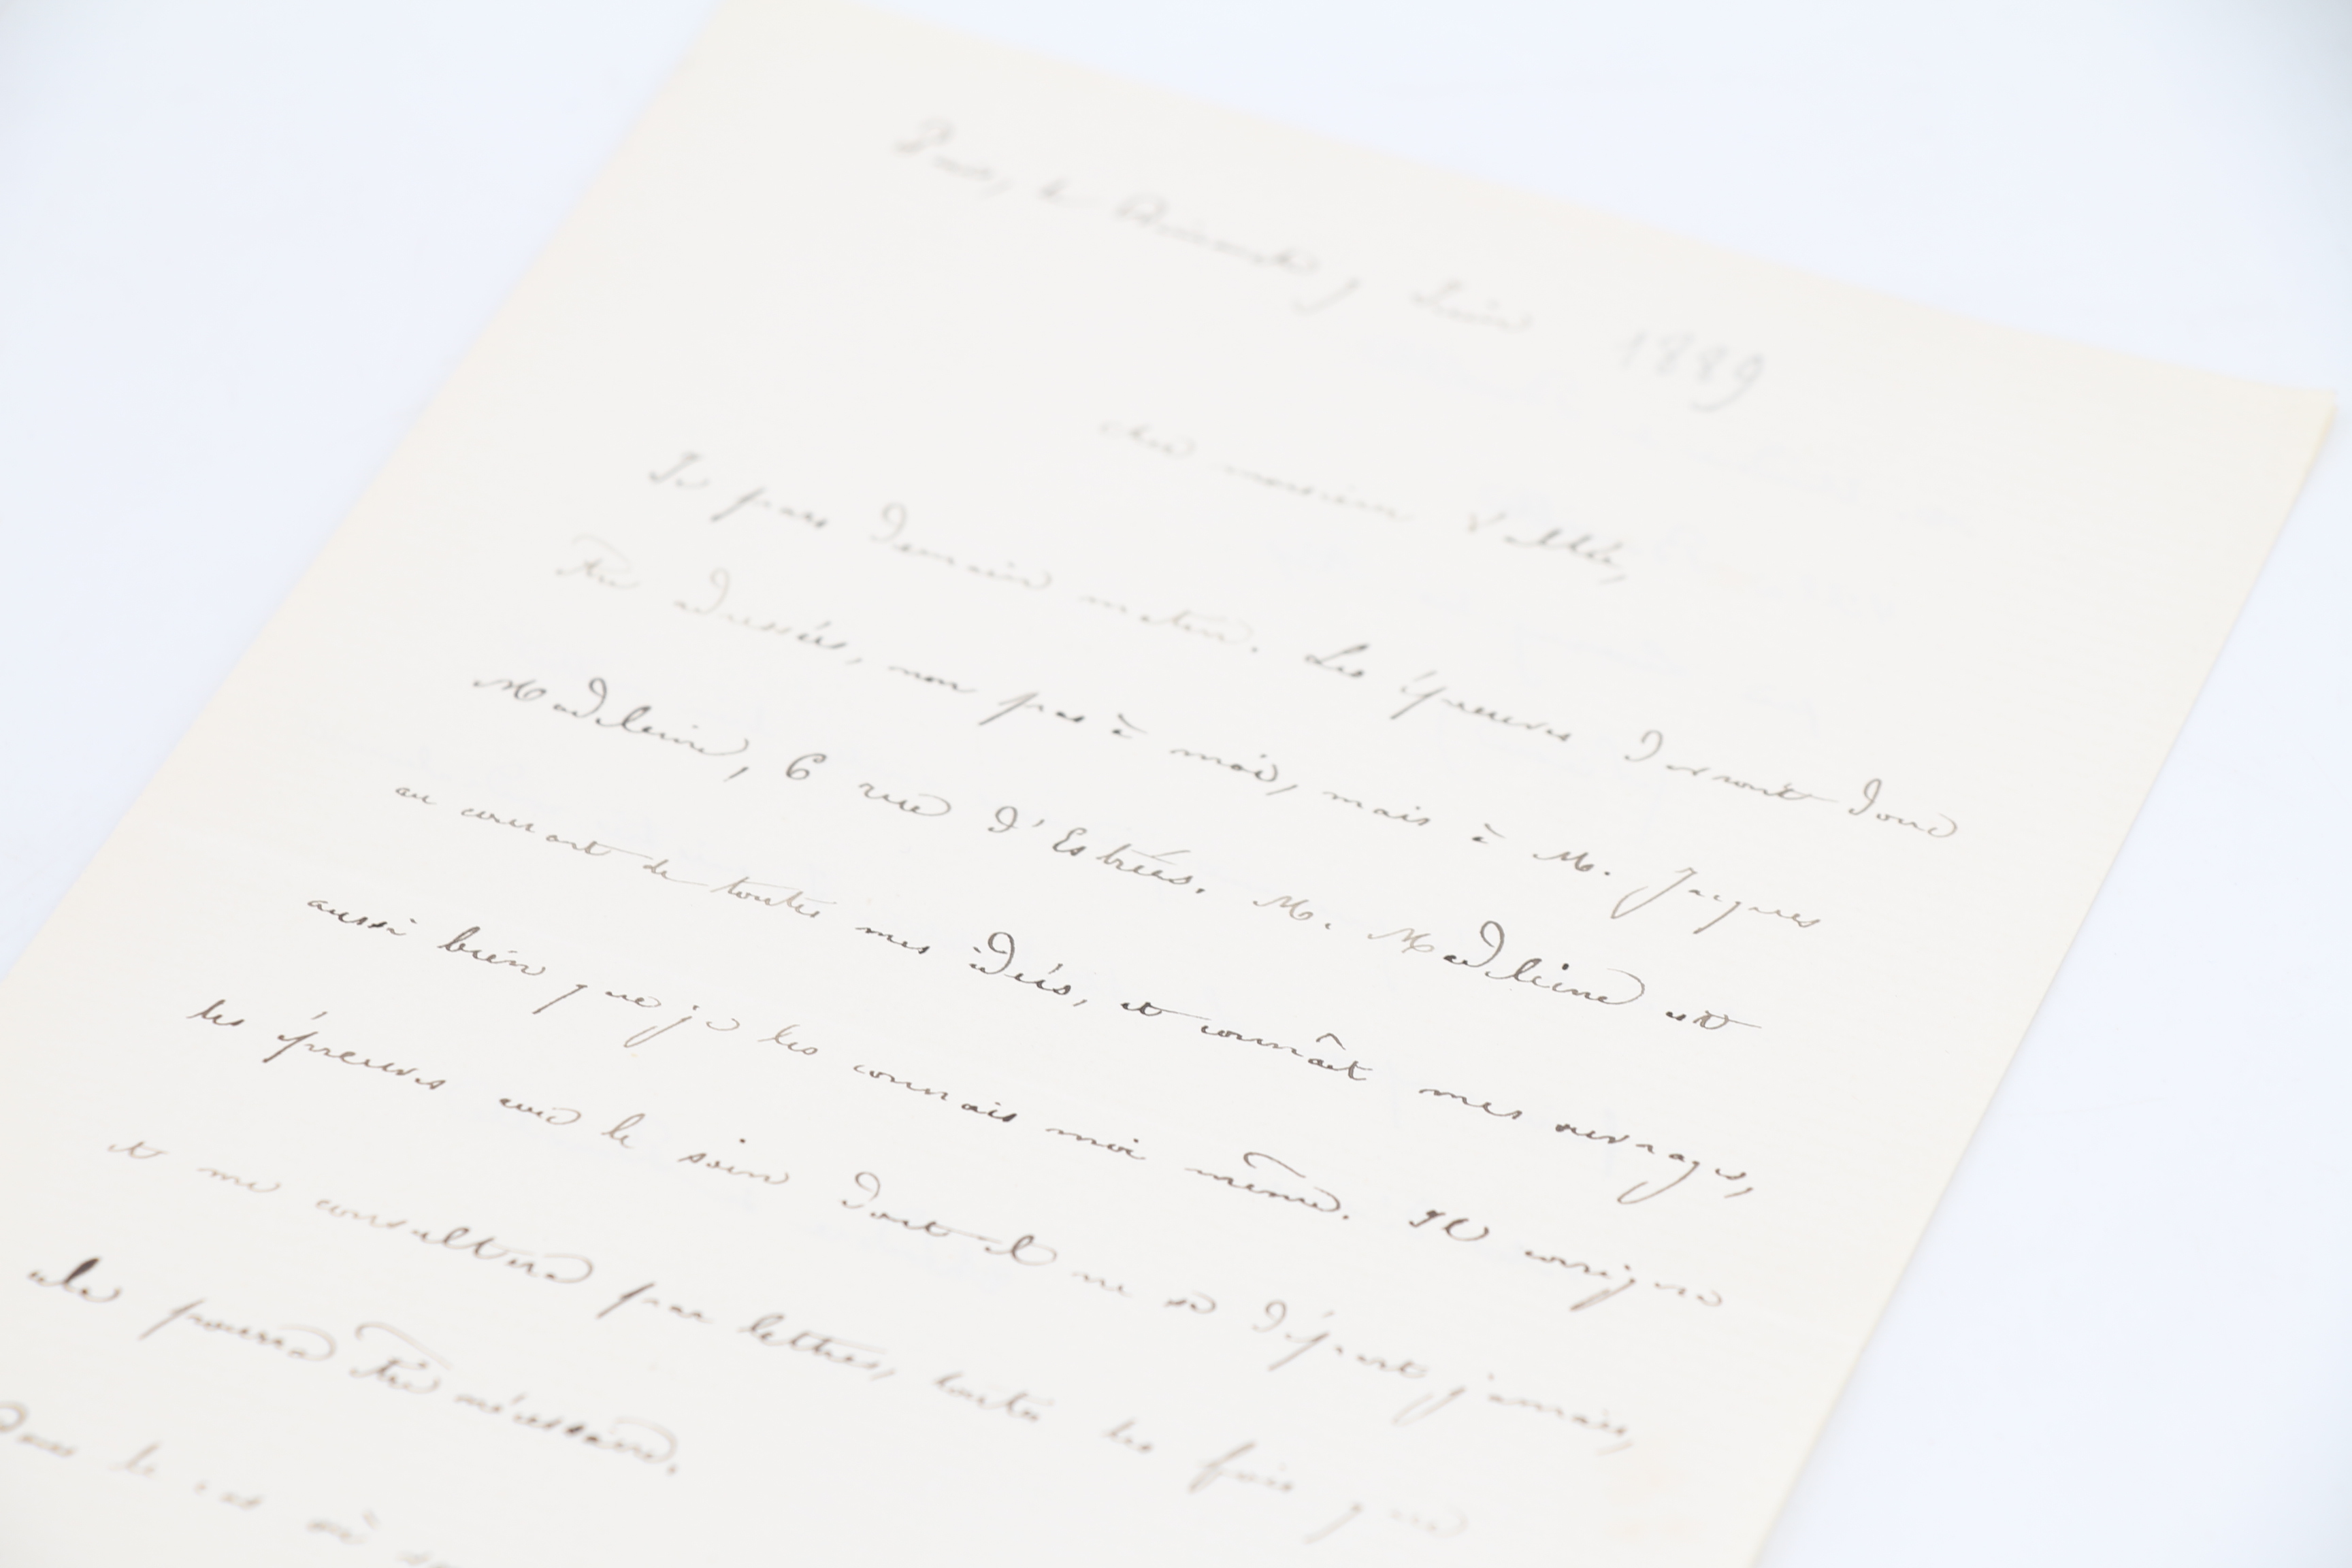 Paris, le Dimanche 9 Juin 1889
cher monsieur Vallée,
Je pars demain matin. Les épreuves devront donc
être adressées, non pas à moi, mais à M. Jacques
Madeleine, 6 rue d'Estrées. M. Madeleine est
au courant de toutes mes idées, et connaît mes ouvrages,
aussi bien que je les connais moi même. Il corrigera
les épreuves avec le soin dont il ne se départ jamais,
et me consultera par lettres, toutes les fois que
cela pourra être nécessaire.
Dans le cas où